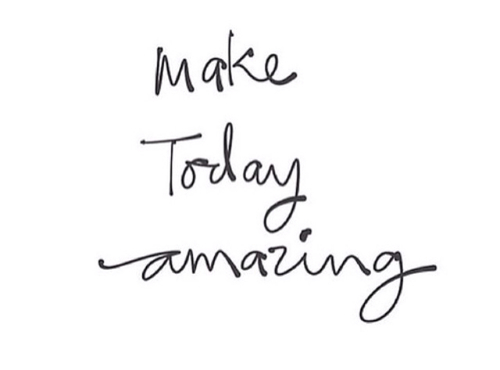 Make
Today
amazing